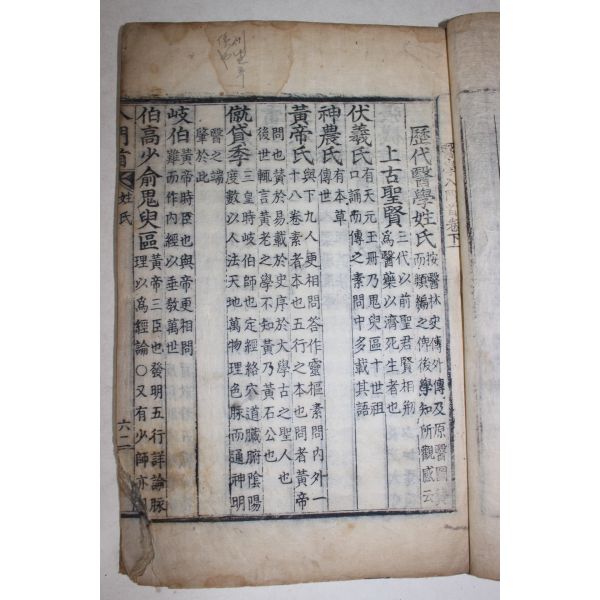 歷代醫學姓氏
按醫林史傳外傳及原醫圖
而類編之俾後學知所觀感云
上古聖賢
三代以前聖君賢相刱
爲醫藥以濟死生者也
伏羲氏
有天元玉冊乃鬼臾區十世祖
口誦而傳之素問中多載其語
神農氏
有本草
傳世
黃帝氏
與下九人更相問答作靈樞素問內外一
十八卷素者本也五行之本也問者黃帝
問也黃於易載於史序於大學古之聖人也
後世輒言黃老之學不知黃乃黃石公也
僦貸季
三皇時岐伯師也定經絡穴道臟腑陰陽
度數以人法天地萬物理色脉而通神明
醫之端
肇於此
岐伯
黃帝時臣也與帝更相問
難而作內經以垂敎萬世
伯高少俞鬼臾區
黃帝三臣也發明五行詳論脉
理以爲經論〇又有少師亦
入門首
姓氏
六二